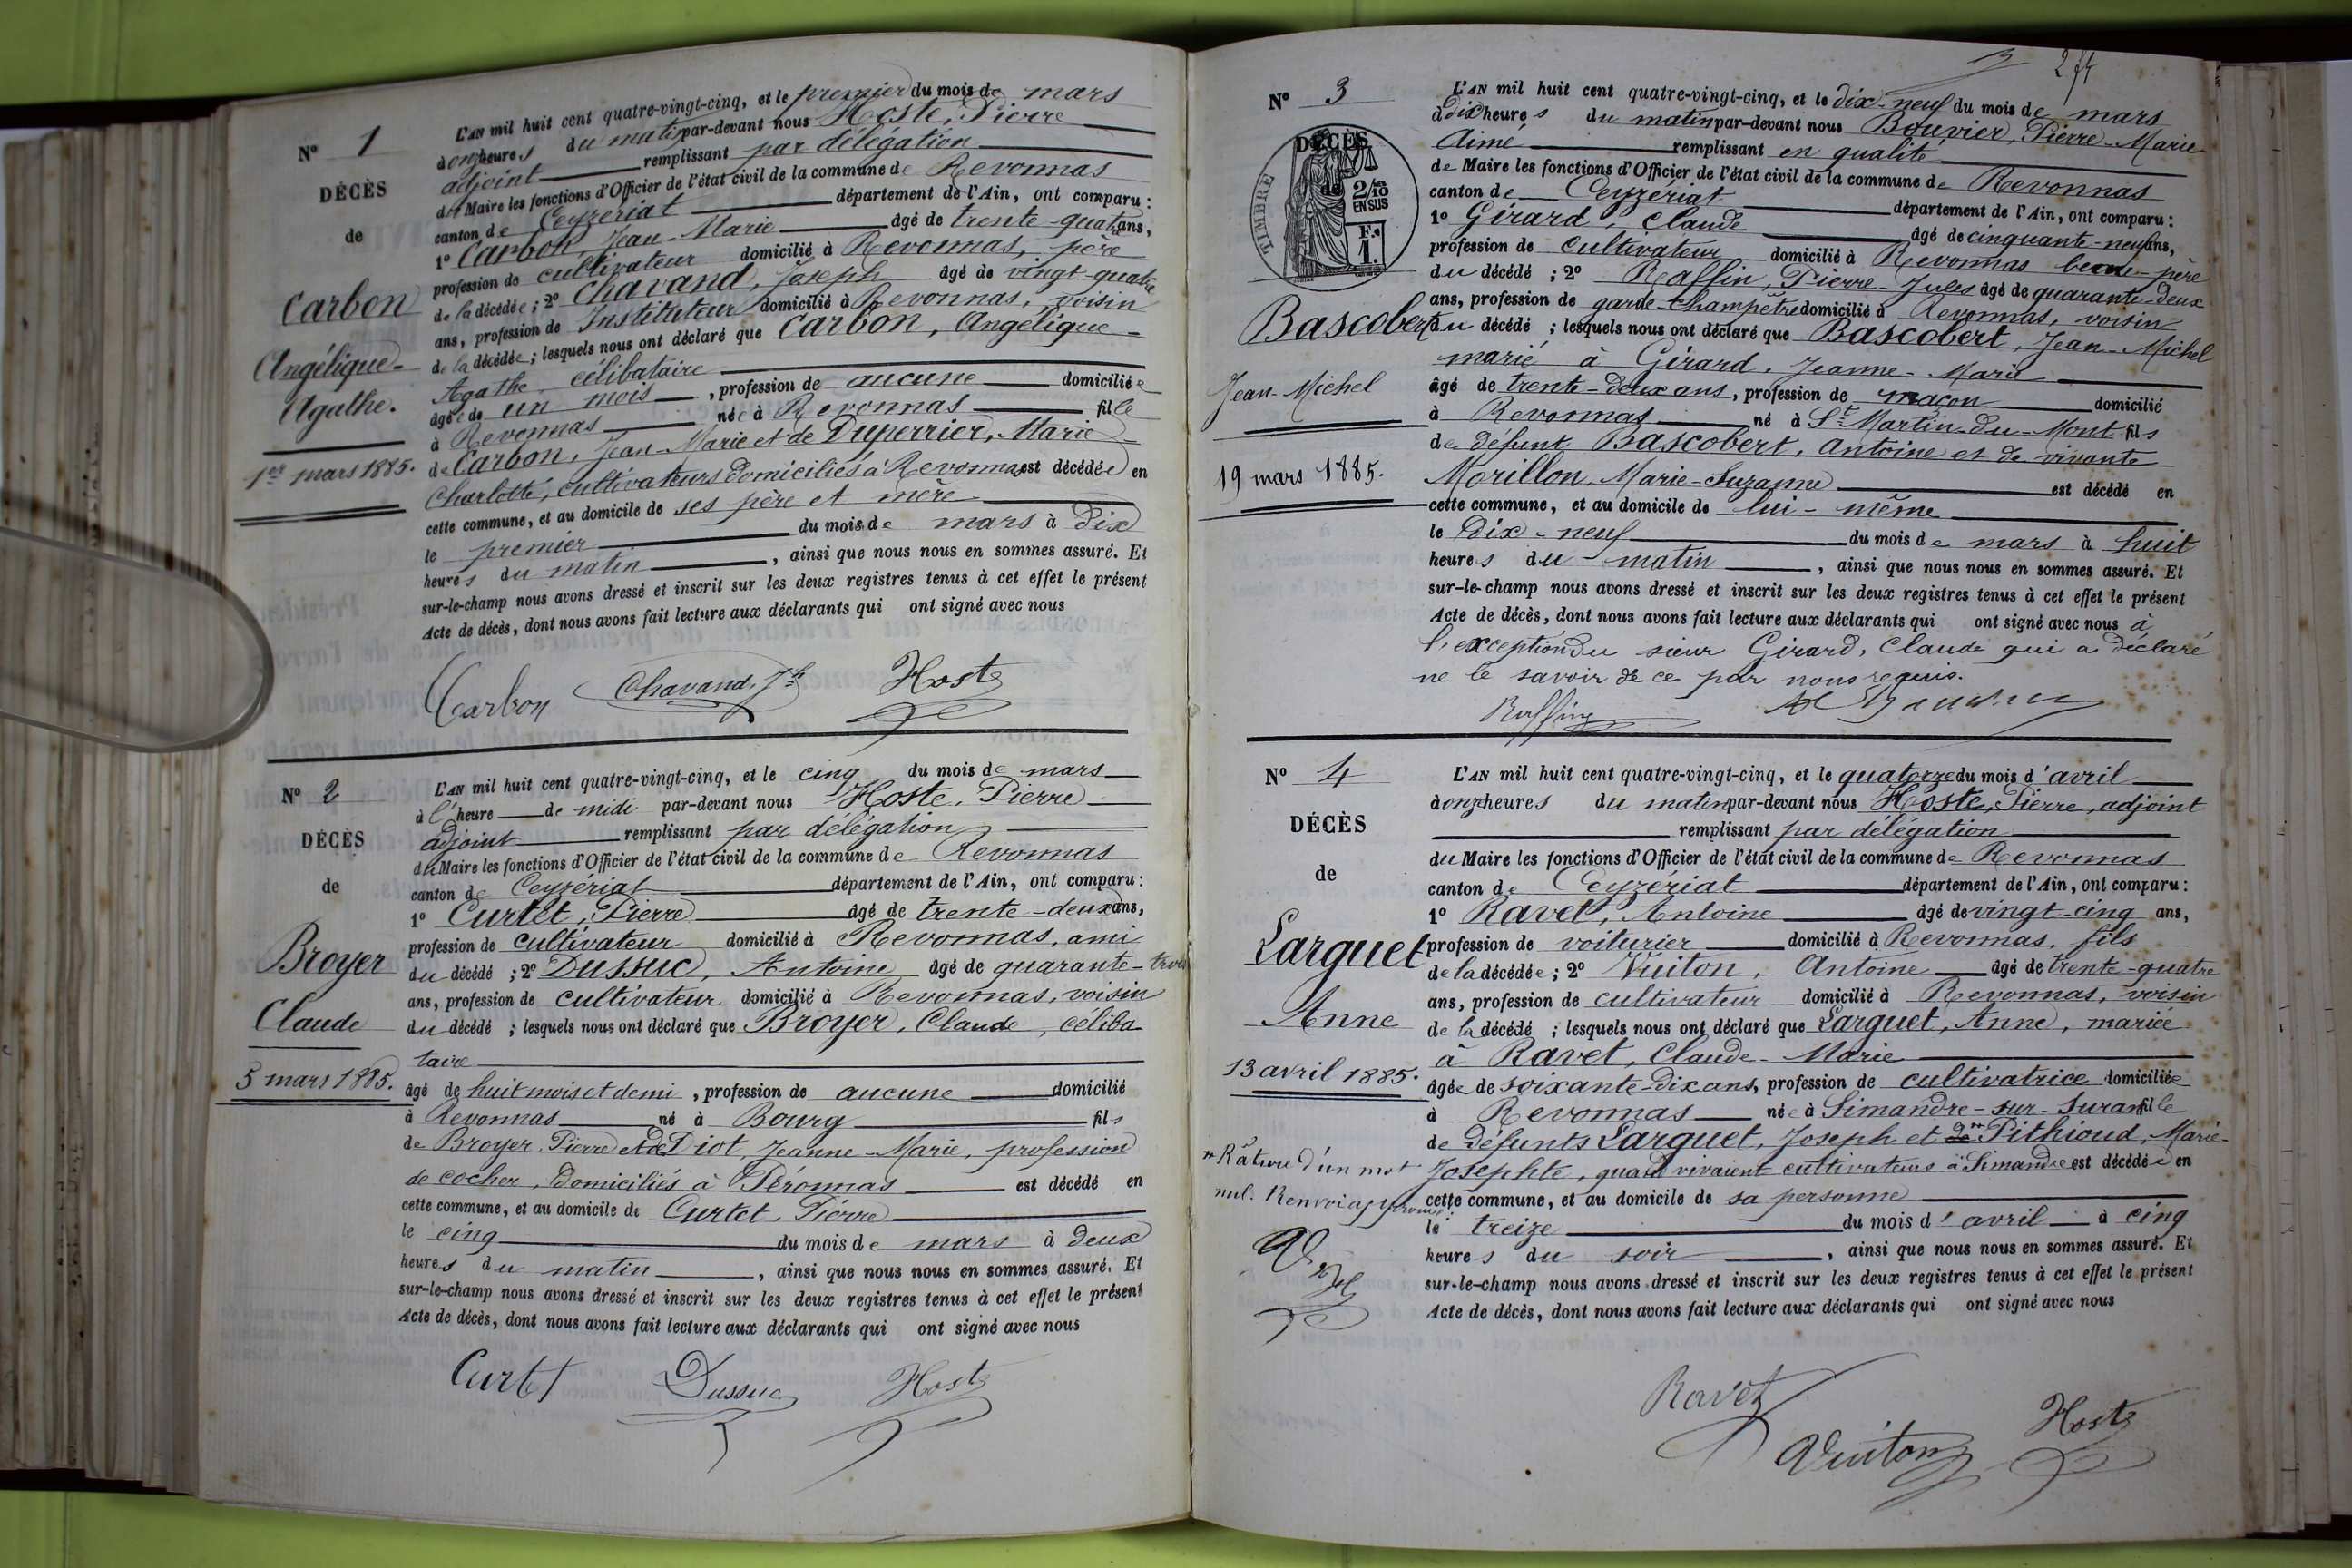 N° 1
DÉCÈS
de
Carbon
Angélique-
Agathe.
1er mars 1885.
L'AN mil huit cent quatre-vingt-cinq, et le premier du mois de mars
à onze heures du matin par-devant nous Hoste, Pierre
adjoint remplissant par délégation
du Maire les fonctions d'Officier de l'état civil de la commune de Revonnas
canton de Ceyzériat département de l'Ain, ont comparu :
1° Carbon Jean-Marie âgé de trente-quatre ans,
profession de cultivateur domicilié à Revonnas, père
de la décédée ; 2° Chavand, Joseph âgé de vingt-quatre
ans, profession de Instituteur domicilié à Revonnas, voisin
de la décédée ; lesquels nous ont déclaré que Carbon, Angélique-
Agathe célibataire
âgée de un mois, profession de aucune domiciliée
à Revonnas née à Revonnas fille
de Carbon, Jean-Marie et de Duperrier, Marie
Charlotte, cultivateurs domiciliés à Revonnas est décédée en
cette commune, et au domicile de ses père et mère
le premier du mois de mars à dix
heures du matin, ainsi que nous nous en sommes assuré. Et
sur-le-champ nous avons dressé et inscrit sur les deux registres tenus à cet effet le présent
Acte de décès, dont nous avons fait lecture aux déclarants qui ont signé avec nous
Carbon Chavand, Jh Hoste
N° 2
DÉCÈS
de
Broyer
Claude
5 mars 1885.
L'AN mil huit cent quatre-vingt-cinq, et le cinq du mois de mars
à l'heure de midi par-devant nous Hoste, Pierre
adjoint remplissant par délégation
du Maire les fonctions d'Officier de l'état civil de la commune de Revonnas
canton de Ceyzériat département de l'Ain, ont comparu :
1° Curtet, Pierre âgé de trente-deux ans,
profession de cultivateur domicilié à Revonnas, ami
du décédé ; 2° Dussuc, Antoine âgé de quarante-trois
ans, profession de cultivateur domicilié à Revonnas, voisin
du décédé ; lesquels nous ont déclaré que Broyer, Claude, céliba
taire
âgé de huit mois et demi, profession de aucune domicilié
à Revonnas né à Bourg fils
de Broyer, Pierre et de Diot, Jeanne-Marie, profession
de cocher, domiciliés à Péronnas est décédé en
cette commune, et au domicile de Curtet, Pierre
le cinq du mois de mars à deux
heures du matin, ainsi que nous nous en sommes assuré. Et
sur-le-champ nous avons dressé et inscrit sur les deux registres tenus à cet effet le présent
Acte de décès, dont nous avons fait lecture aux déclarants qui ont signé avec nous
Curtet Dussuc Hoste
274
N° 3
DÉCÈS
de
TIMBRE
2/10 ES
EN SUS
F.c
1.
Bascobert
Jean-Michel
19 mars 1885.
L'AN mil huit cent quatre-vingt-cinq, et le dix-neuf du mois de mars
à dix heures du matin par-devant nous Bouvier, Pierre-Marie
Aimé remplissant en qualité
de Maire les fonctions d'Officier de l'état civil de la commune de Revonnas
canton de Ceyzériat département de l'Ain, ont comparu :
1° Girard, Claude âgé de cinquante-neuf ans,
profession de cultivateur domicilié à Revonnas beau-père
du décédé ; 2° Raffin, Pierre-Jules âgé de quarante-deux
ans, profession de garde-champêtre domicilié à Revonnas, voisin
du décédé ; lesquels nous ont déclaré que Bascobert, Jean-Michel
marié à Girard, Jeanne-Marie
âgé de trente-deux ans, profession de maçon domicilié
à Revonnas né à St-Martin-du-Mont fils
de défunt Bascobert, Antoine et de vivante
Morillon, Marie-Suzanne est décédé en
cette commune, et au domicile de lui-même
le dix-neuf du mois de mars à huit
heures du matin, ainsi que nous nous en sommes assuré. Et
sur-le-champ nous avons dressé et inscrit sur les deux registres tenus à cet effet le présent
Acte de décès, dont nous avons fait lecture aux déclarants qui ont signé avec nous à
l'exception du sieur Girard, Claude qui a déclaré
ne le savoir de ce par nous requis.
Raffin
N° 4
DÉCÈS
de
Larguet
Anne
13 avril 1885.
"Rature d'un mot
nul. Renvoi approuvé.
L'AN mil huit cent quatre-vingt-cinq, et le quatorze du mois d'avril
à onze heures du matin par-devant nous Hoste, Pierre, adjoint
remplissant par délégation
du Maire les fonctions d'Officier de l'état civil de la commune de Revonnas
canton de Ceyzériat département de l'Ain, ont comparu :
1° Ravet, Antoine âgé de vingt-cinq ans,
profession de voiturier domicilié à Revonnas, fils
de la décédée ; 2° Vuiton, Antoine âgé de trente-quatre
ans, profession de cultivateur domicilié à Revonnas, voisin
de la décédé ; lesquels nous ont déclaré que Larguet, Anne, mariée
à Ravet, Claude-Marie
âgée de soixante-dix ans, profession de cultivatrice domiciliée
à Revonnas née à Simandre-sur-Suran fille
de défunts Larguet, Joseph et de Pithioud, Marie-
Josephte, quand vivaient cultivateurs à Simandre est décédée en
cette commune, et au domicile de sa personne
le treize du mois d'avril à cinq
heures du soir, ainsi que nous nous en sommes assuré. Et
sur-le-champ nous avons dressé et inscrit sur les deux registres tenus à cet effet le présent
Acte de décès, dont nous avons fait lecture aux déclarants qui ont signé avec nous
Ravet Vuiton Hoste